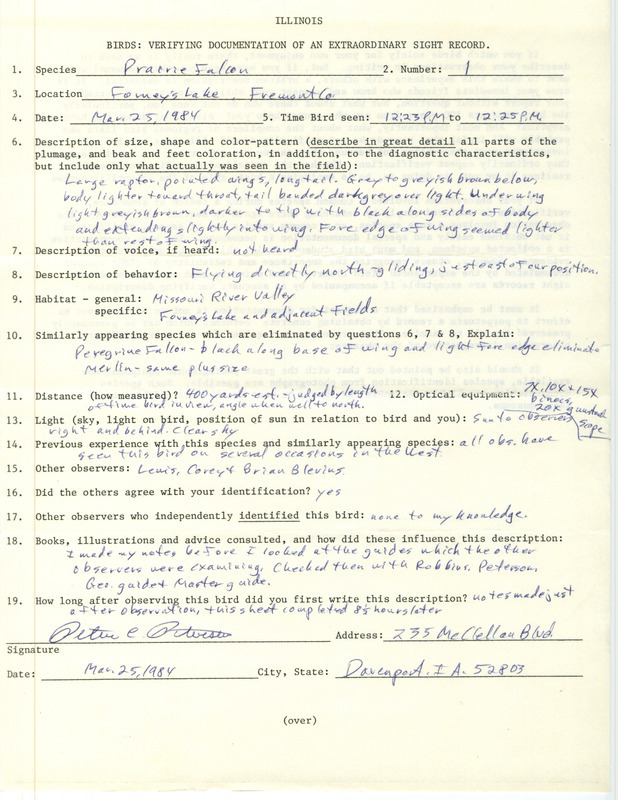 ILLINOIS
BIRDS: VERIFYING DOCUMENTATION OF AN EXTRAORDINARY SIGHT RECORD.
1. Species Prairie Falcon 2. Number: 1
3. Location Forney's Lake, Fremont Co
4. Date: Mar. 25, 1984 5. Time Bird seen: 12:23 P.M to 12:25 P.M.
6. Description of size, shape and color-pattern (describe in great detail all parts of the
plumage, and beak and feet coloration, in addition, to the diagnostic characteristics,
but include only what actually was seen in the field):
Large raptor, pointed wings, long tail. Grey to greyish brown below,
body lighter toward throat, tail banded dark grey over light. Under wing
light greyish brown, darker to tip with black along sides of body
and extending slightly into wing. Fore edge of wing seemed lighter
than rest of wing.
7. Description of voice, if heard: not heard
8. Description of behavior: Flying directly north - gliding, just east of our position.
9. Habitat - general: Missouri River Valley
specific: Forney's Lake and adjacent fields
10. Similarly appearing species which are eliminated by questions 6, 7 & 8, Explain:
Peregrine Falcon - black along base of wing and light fore edge eliminate
Merlin - same plus size
11. Distance (how measured)? 400 yards est. - judged by length
of time bird in view, angle when well to north.
12. Optical equipment: 7x, 10x + 15x
binocs,
20x gunstock
scope
13. Light (sky, light on bird, position of sun in relation to bird and you): Sun to observers
right and behind. Clear sky
14. Previous experience with this species and similarly appearing species: all obs. have
seen this bird on several occasions in the West.
15. Other observers: Lewis, Corey & Brian Blevins.
16. Did the others agree with your identification? yes
17. Other observers who independently identified this bird: none to my knowledge.
18. Books, illustrations and advice consulted, and how did these influence this description:
I made my notes before I looked at the guides which the other
observers were examining. Checked then with Robbins, Peterson,
Geo. guide & Master guide.
19. How long after observing this bird did you first write this description? notes made just
after observation, this sheet completed 8½ hours later
Peter C Petersen Address: 235 McClellan Blvd.
Signature
Date: Mar. 25, 1984 City, State: Davenport, IA. 52803
(over)